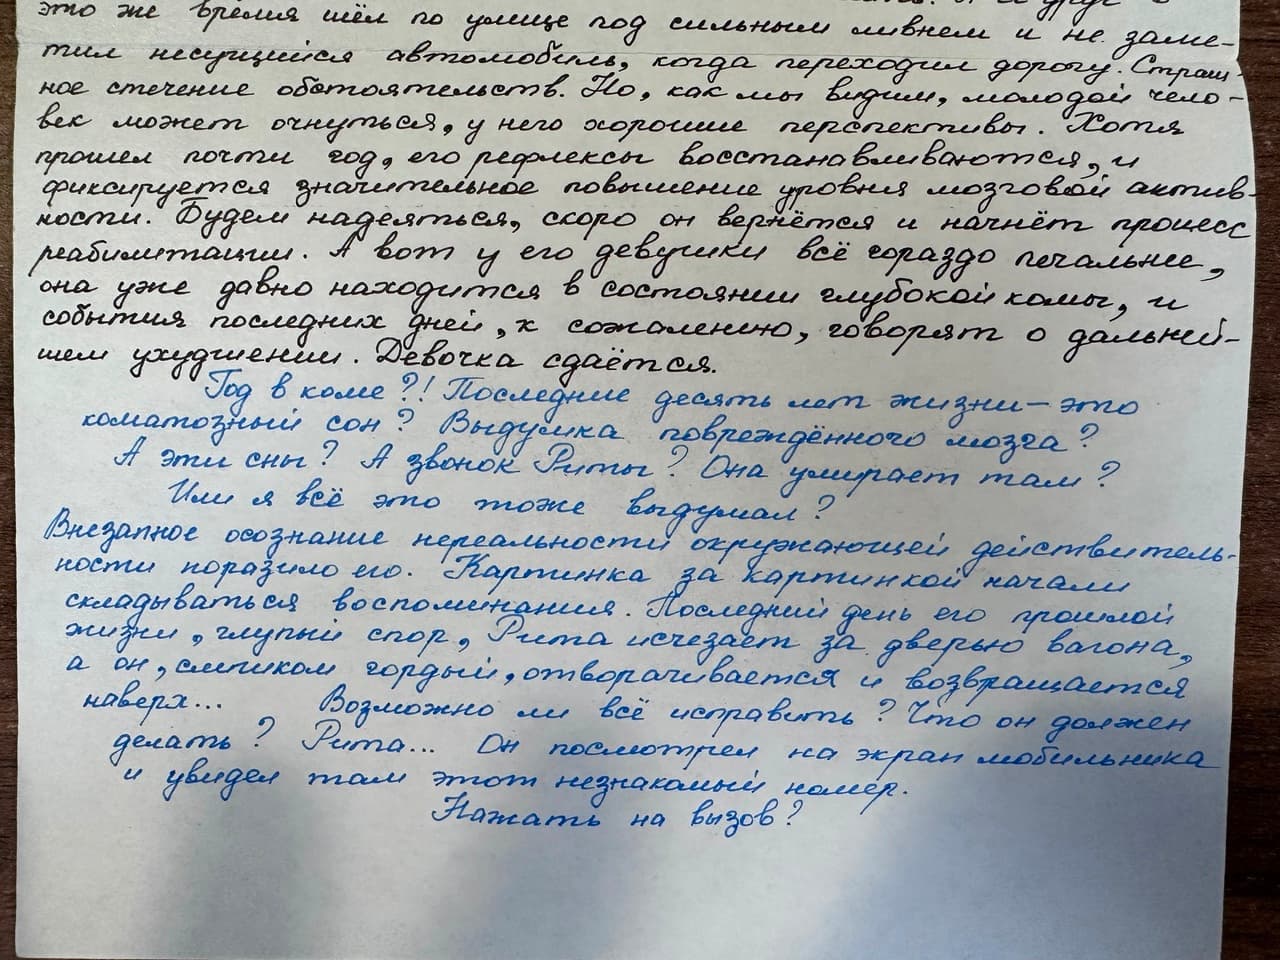 это же время шёл по улице под сильным ливнем и не заме-
тил несущийся автомобиль, когда переходил дорогу. Страш-
ное стечение обстоятельств. Но, как мы видим, молодой чело-
век может очнуться, у него хорошие перспективы. Хотя
прошел почти год, его рефлексы восстанавливаются, и
фиксируется значительное повышение уровня мозговой актив-
ности. Будем надеяться, скоро он вернётся и начнёт процесс
реабилитации. А вот у его девушки всё гораздо печальнее,
она уже давно находится в состоянии глубокой комы, и
события последних дней, к сожалению, говорят о дальней-
шем ухудшении. Девочка сдаётся.
Год в коме?! Последние десять лет жизни — это
коматозный сон? Выдумка повреждённого мозга?
А эти сны? А звонок Риты? Она умирает там?
Или я всё это тоже выдумал?
Внезапное осознание нереальности окружающей действитель-
ности поразило его. Картинка за картинкой начали
складываться воспоминания. Последний день его прошлой
жизни, глупый спор, Рита исчезает за дверью вагона,
а он, слишком гордый, отворачивается и возвращается
наверх... Возможно ли всё исправить? Что он должен
делать? Рита... Он посмотрел на экран мобильника
и увидел там этот незнакомый номер.
Нажать на вызов?